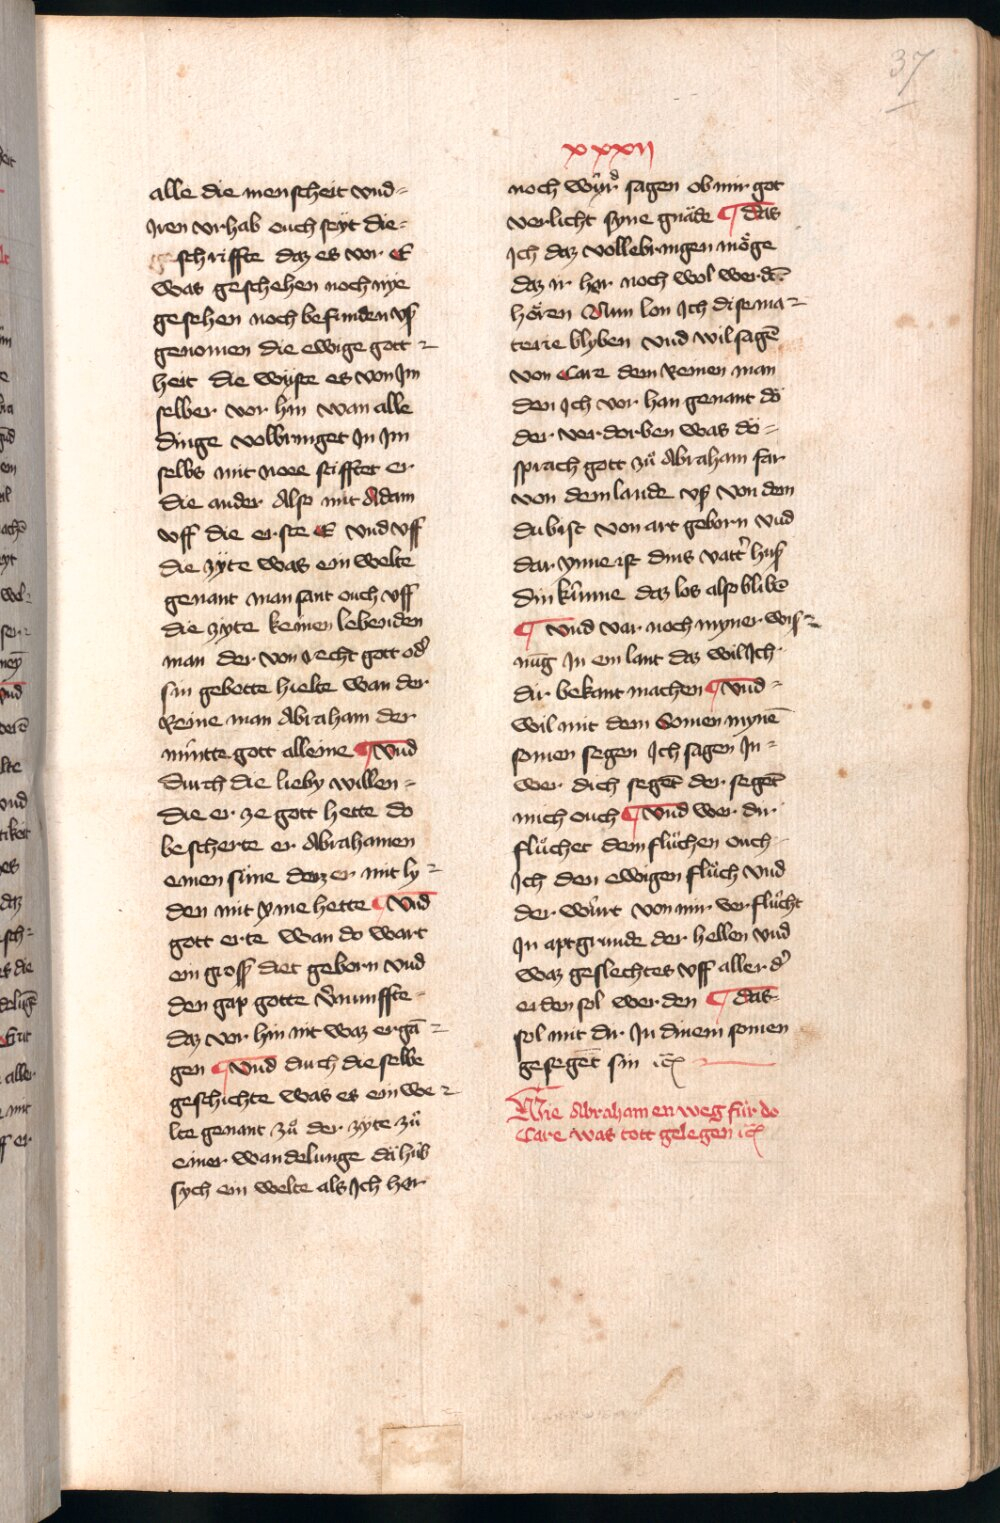 37
xxxii
alle die menscheit vnd=
Iren vrhab ouch seyt die=
geschriffte daz es vor E
was geschehen noch nye
gesehen noch befunden vß
genomen die ewige gott=
heit die wyste es von Im
selber vor hin wan alle
dinge volbringet In Im
selbs mit noee stifftet er
die ander Also mit Adam
vff die erste E vnd vff
die zyte was ein welte
genant man fant ouch vff
die zyte keinen lebenden
man der von recht gott od̉
sin gebotte hielte wan der
Reine man Abraham der
mintte gott alleine ¶ Vnd
durch die lieby willen=
die er ze gott hette do
bescherte er Abrahamen
einen sune den er mit ly=
den mit yme hette ¶ Vnd
gott erte wan do wart
ein groß diet geborn vnd
den gap gotte v̉nunffte
daz vor hin nit waz ergā=
gen ¶ Vnd durch die selbe
geschichte was es ein we=
lte genant zů der zyte zů
einer wandelunge da hůb
sych ein welte als Ich her
noch wyrd̉ sagen ob mir got
verlicht syne gnäde ¶ das
Ich daz vollebringen möge
daz ir her noch wol werdē
hören Nun lon Ich dise ma=
terie blyben vnd wil sagē
von Care dem Reinen man
den Ich vor han genant dö
der verdorben was dö=
sprach gott zů Abraham far
von dem lande vß von dem
du bist von art geborn vnd
dar ynne ist dins vatt̉ huß
din künne daz los also blibē
¶ Vnd var noch myner wis=
nūg In ein lant daz wil Ich
dir bekant machen ¶ Vnd=
wil mit dem Somen mynē
somen segen Ich sagen In=
wer dich segēt der segēt
mich ouch ¶ Vnd wer dir
flůchet dem flůchen ouch
Ich den ewigen flůch vnd
der würt von mir verflůcht
In aptgrunde der hellen vnd
waz geslechtes vff aller d̉
erden sol werden ¶ das
sol mit dir In dinem somen
gesegēt sin ꝛc̄
Wie Abraham en weg für do
Care was tott gelegen ꝛc̄